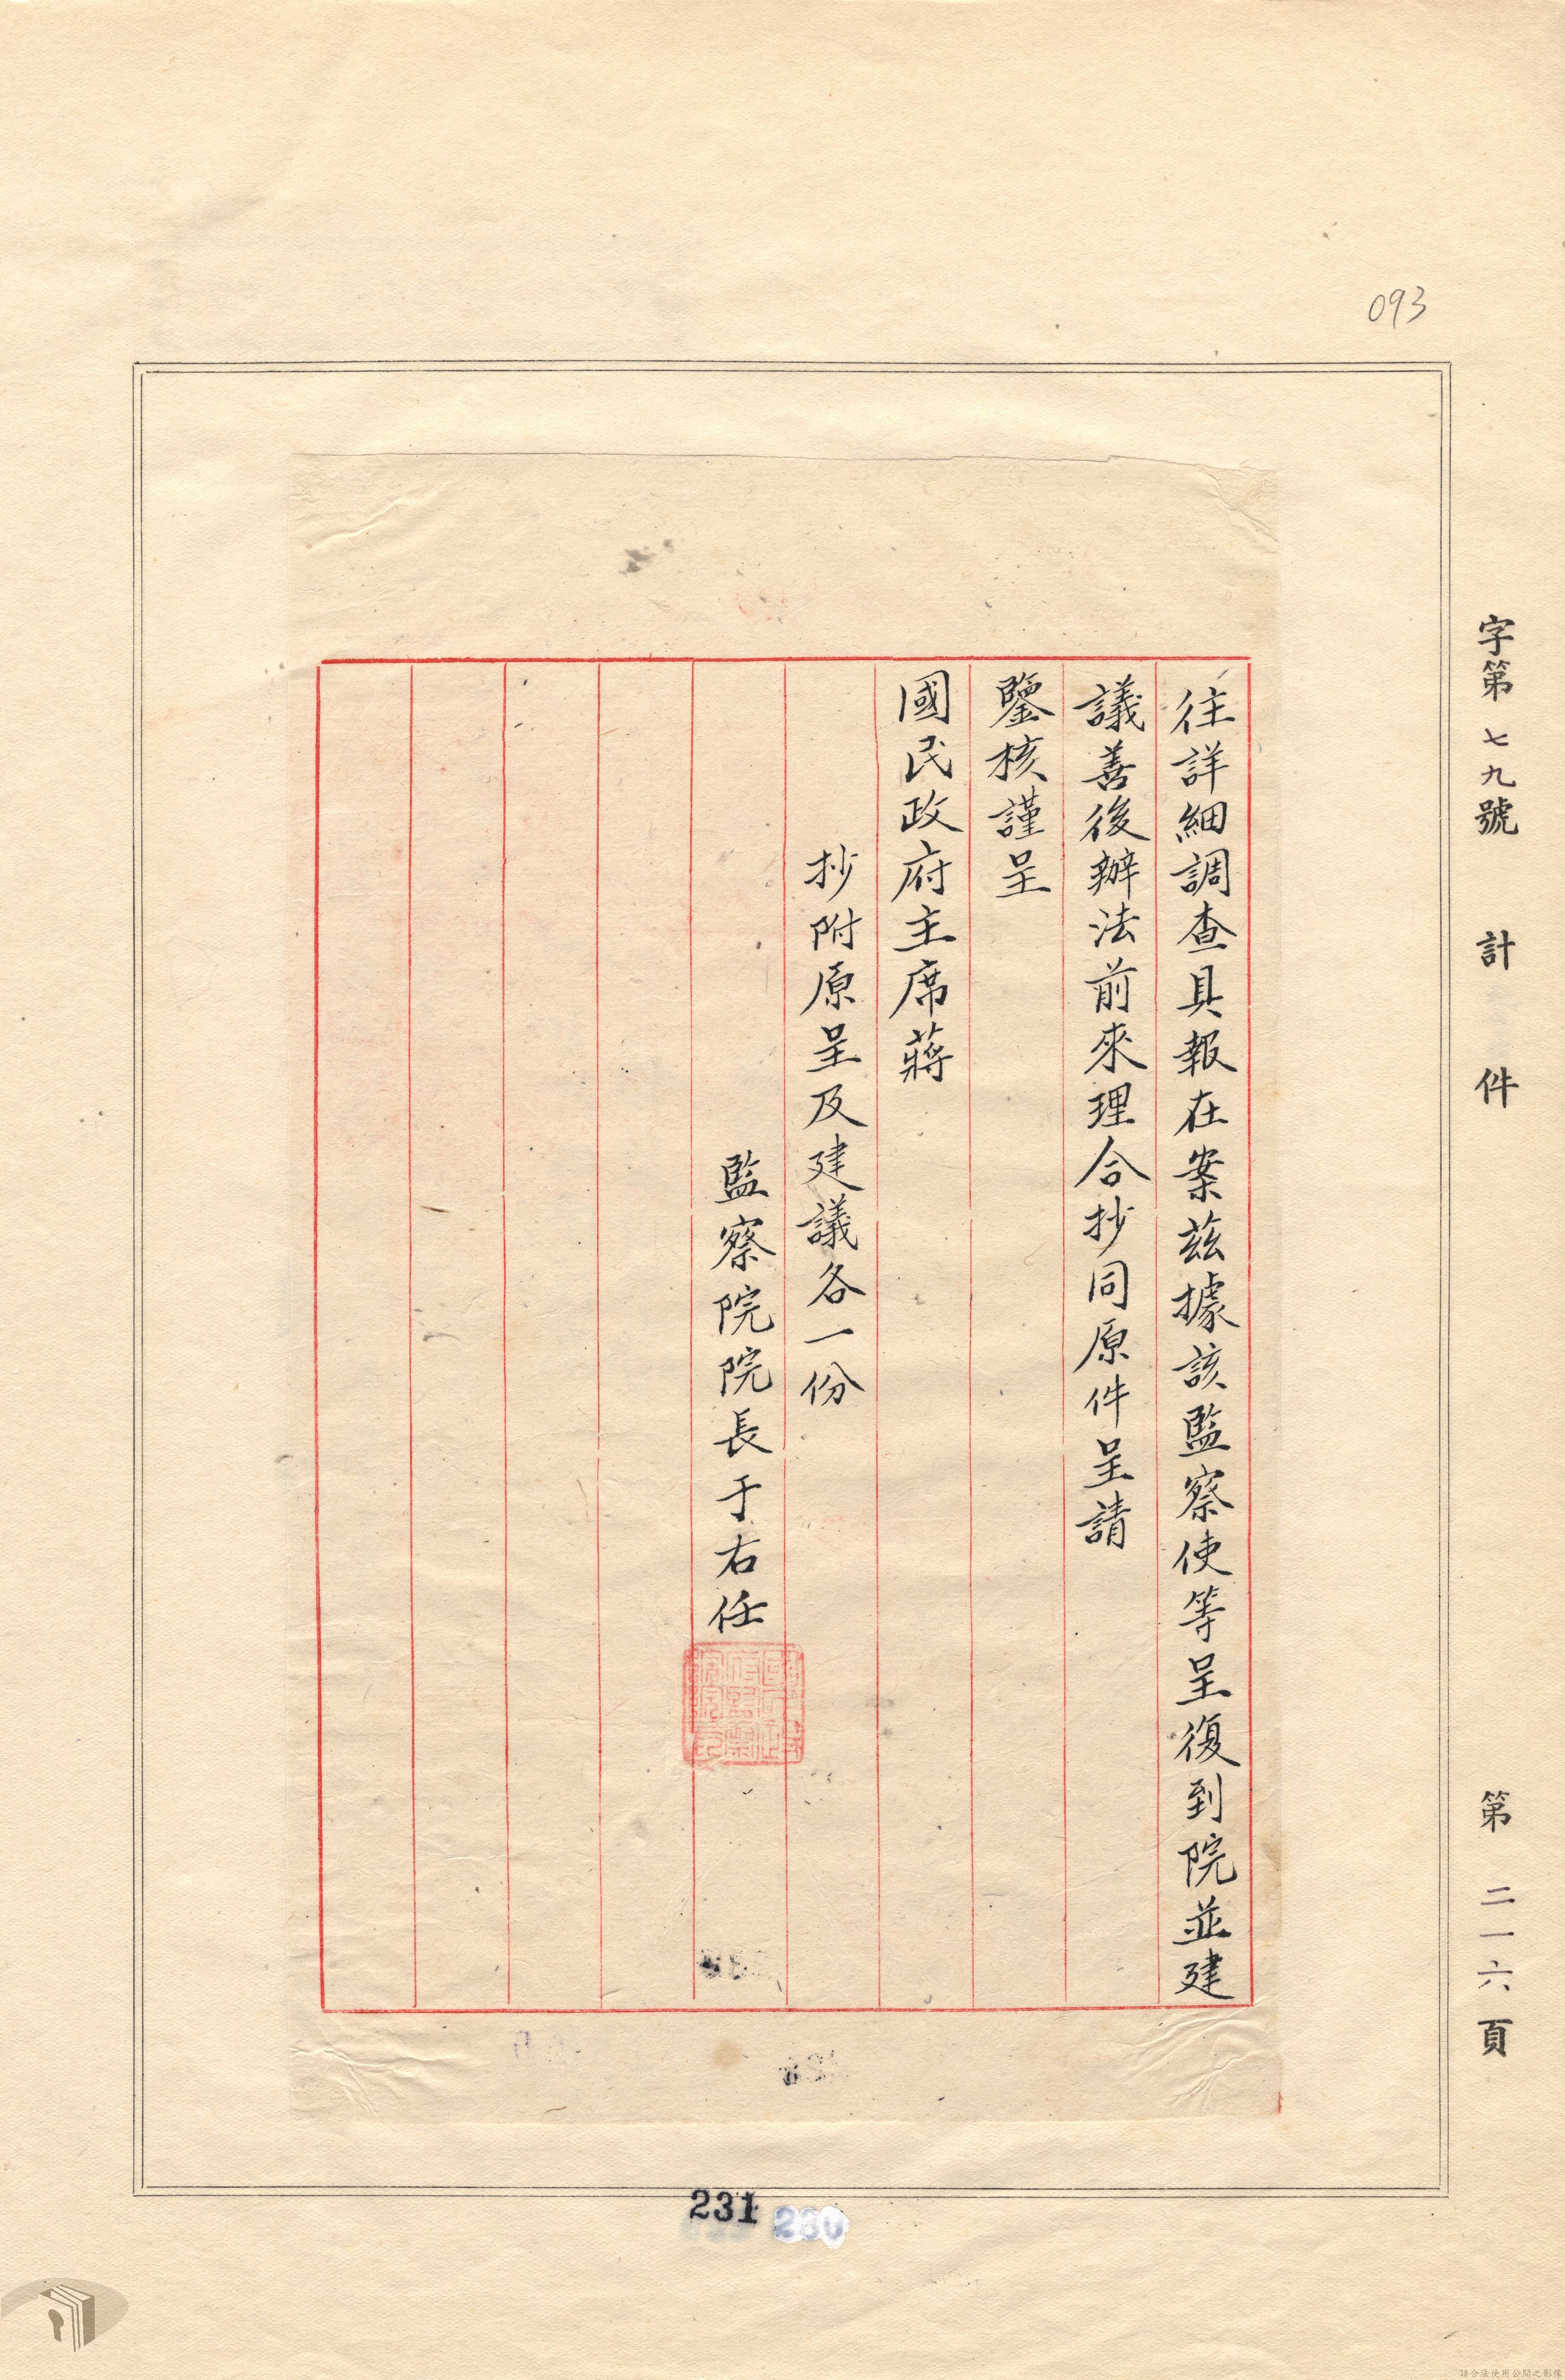 093
字第七九號 計 件 第二一六頁
往詳細調查具報在案茲據該監察使等呈復到院並建
議善後辦法前來理合抄同原件呈請
鑒核謹呈
國民政府主席蔣
抄附原呈及建議各一份
監察院院長于右任
231
230
請合法使用公開之影像